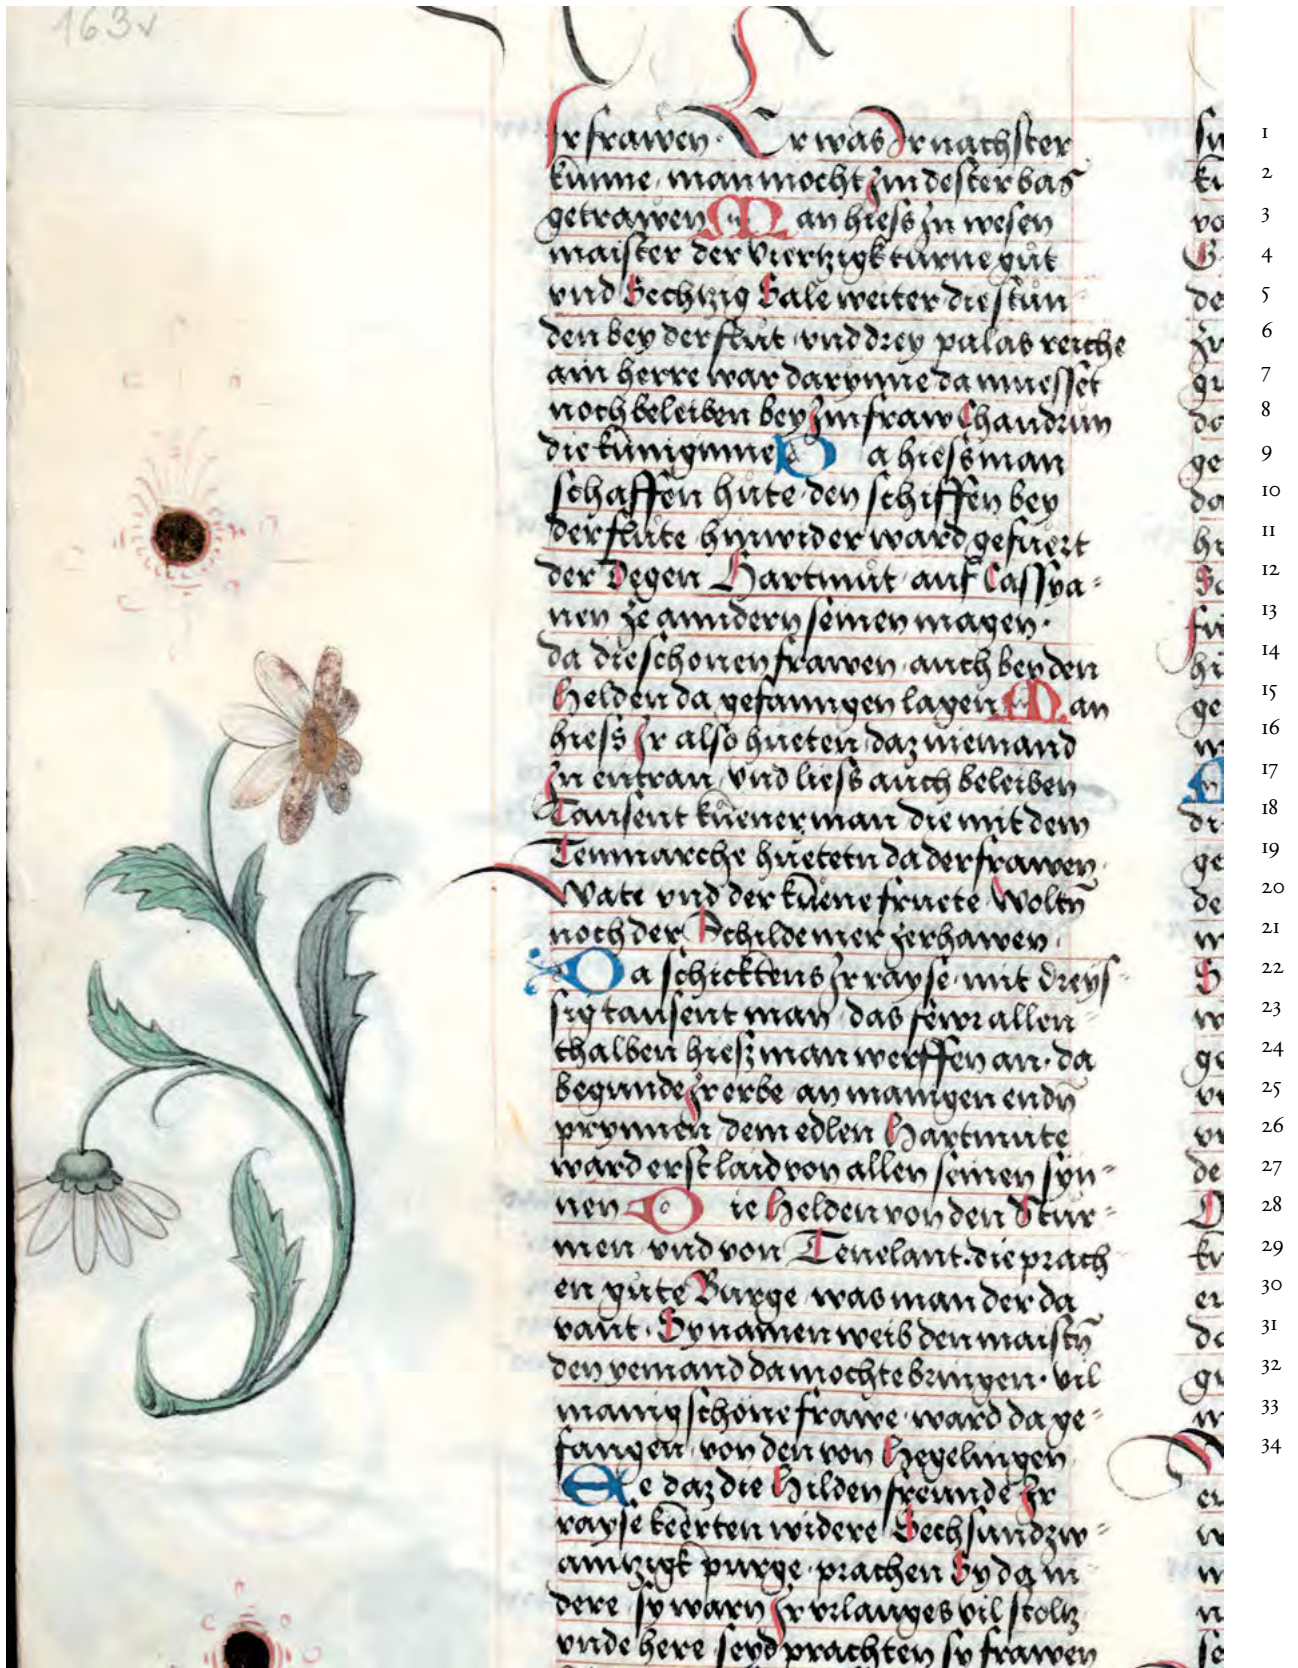 163v
Ir frawen · Er was Ir nachster
kunne, man mocht Im dester bas
getrawen Man hiess In wesen
maister der viertzigk turne gůt
vnd Sechtzig Sale weiter die stůn-
den bey der flůt vnd drey palas reiche
ain herre war darynne da muesset
noch beleiben bey Im fraw Chaudrun
die kunigynne Da hiess man
schaffen hůte, den schiffen bey
der flůte, hinwider ward gefuert
der Degen Hartmůt auf Cassya-
nen ze anndern seinen magen ·
da die schonen frawen auch bey den
Helden da gefanngen lagen Man
hiess Ir also hueten daz niemand
In entran, vnd liess auch beleiben
Tausent kuener man die mit dem
Tennmarche huetetn da der frawen ·
Wate vnd der kuene fruete Woltn̄
noch der Schilde mer zerhawen ·
Da schicktens Ir rayse mit dreys-
sig tausent man das fewr allen
thalben hiesz man werffen an · da
begunde Ir erbe an manigen endn̄
prynnen dem edlen Hartmute
ward erst laid von allen seinen syn-
nen Die Helden von den Stur-
men vnd von Tenelant · die prach
en gůte Burge was man der da
vant · Sy namen weib den maistn̄
den yemand da mochte bringen · vil
manig schöne frawe ward da ge-
fangen, von den von Hegelingen
Ee daz die Hilden freunde Ir
rayse keerten widere Sechsundzw-
aintzigk purge prachen Sy da ni
dere sy warn Ir vrlauges vil stoltz
vnde here seyd prachten sy frawen
1
2
3
4
5
6
7
8
9
10
11
12
13
14
15
16
17
18
19
20
21
22
23
24
25
26
27
28
29
30
31
32
33
34